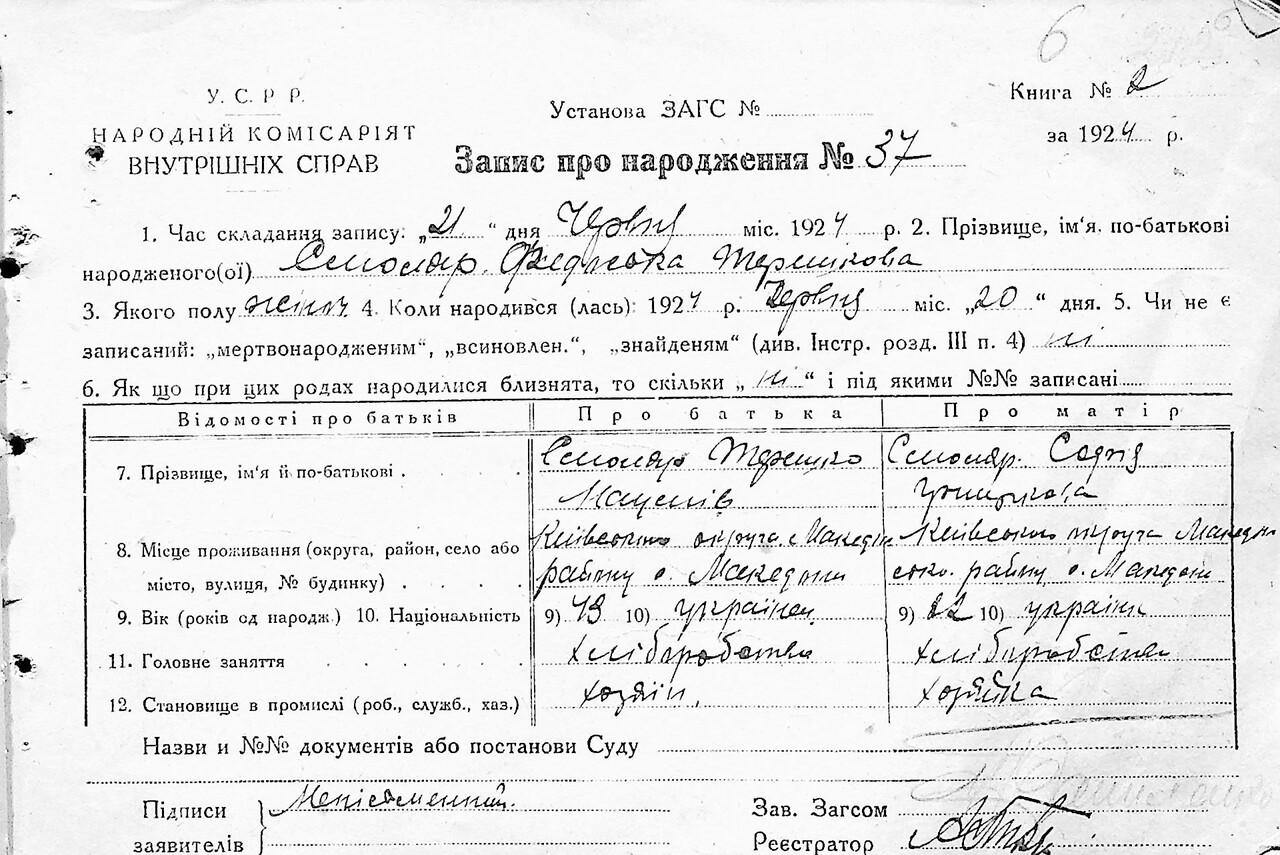 6
У. С. Р Р.
НАРОДНІЙ КОМІСАРІЯТ
ВНУТРІШНІХ СПРАВ
Установа ЗАГС №
Книга № 2
за 1924 р.
Запис про народження № 37
1. Час складання запису: „21" дня Червня міс. 1924 р. 2. Прізвище, ім'я. по-батькові
народженого(ої) Смоляр Терешкова
3. Якого полу 4. Коли народився (лась): 1924 р. Червня міс. „20" дня. 5. Чи не є
записаний: „мертвонародженим", „всиновлен.", „знайденям" (див. Інстр. розд. III п. 4) ні
6. Як що при цих родах народилися близнята, то скільки „ ні " і під якими №№ записані
Відомості про батьків Про батька Про матір
7. Прізвище, ім'я й по-батькові . Смоляр Терешко Смоляр Софія
8. Місце проживання (округа, район, село або Київського округа Київського округа
місто, вулиця, № будинку) . . . . району с. Македони району с. Македони
9. Вік (років од народж.) 10. Національність 9) 43 10) українец 9) 22 10) україн
11. Головне заняття . . . . . Хліборобство Хліборобство
12. Становище в промислі (роб., служб., хаз.) хозяїн. хозяйка
Назви и №№ документів або постанови Суду
Підписи
заявителів
Зав. Загсом
Реєстратор